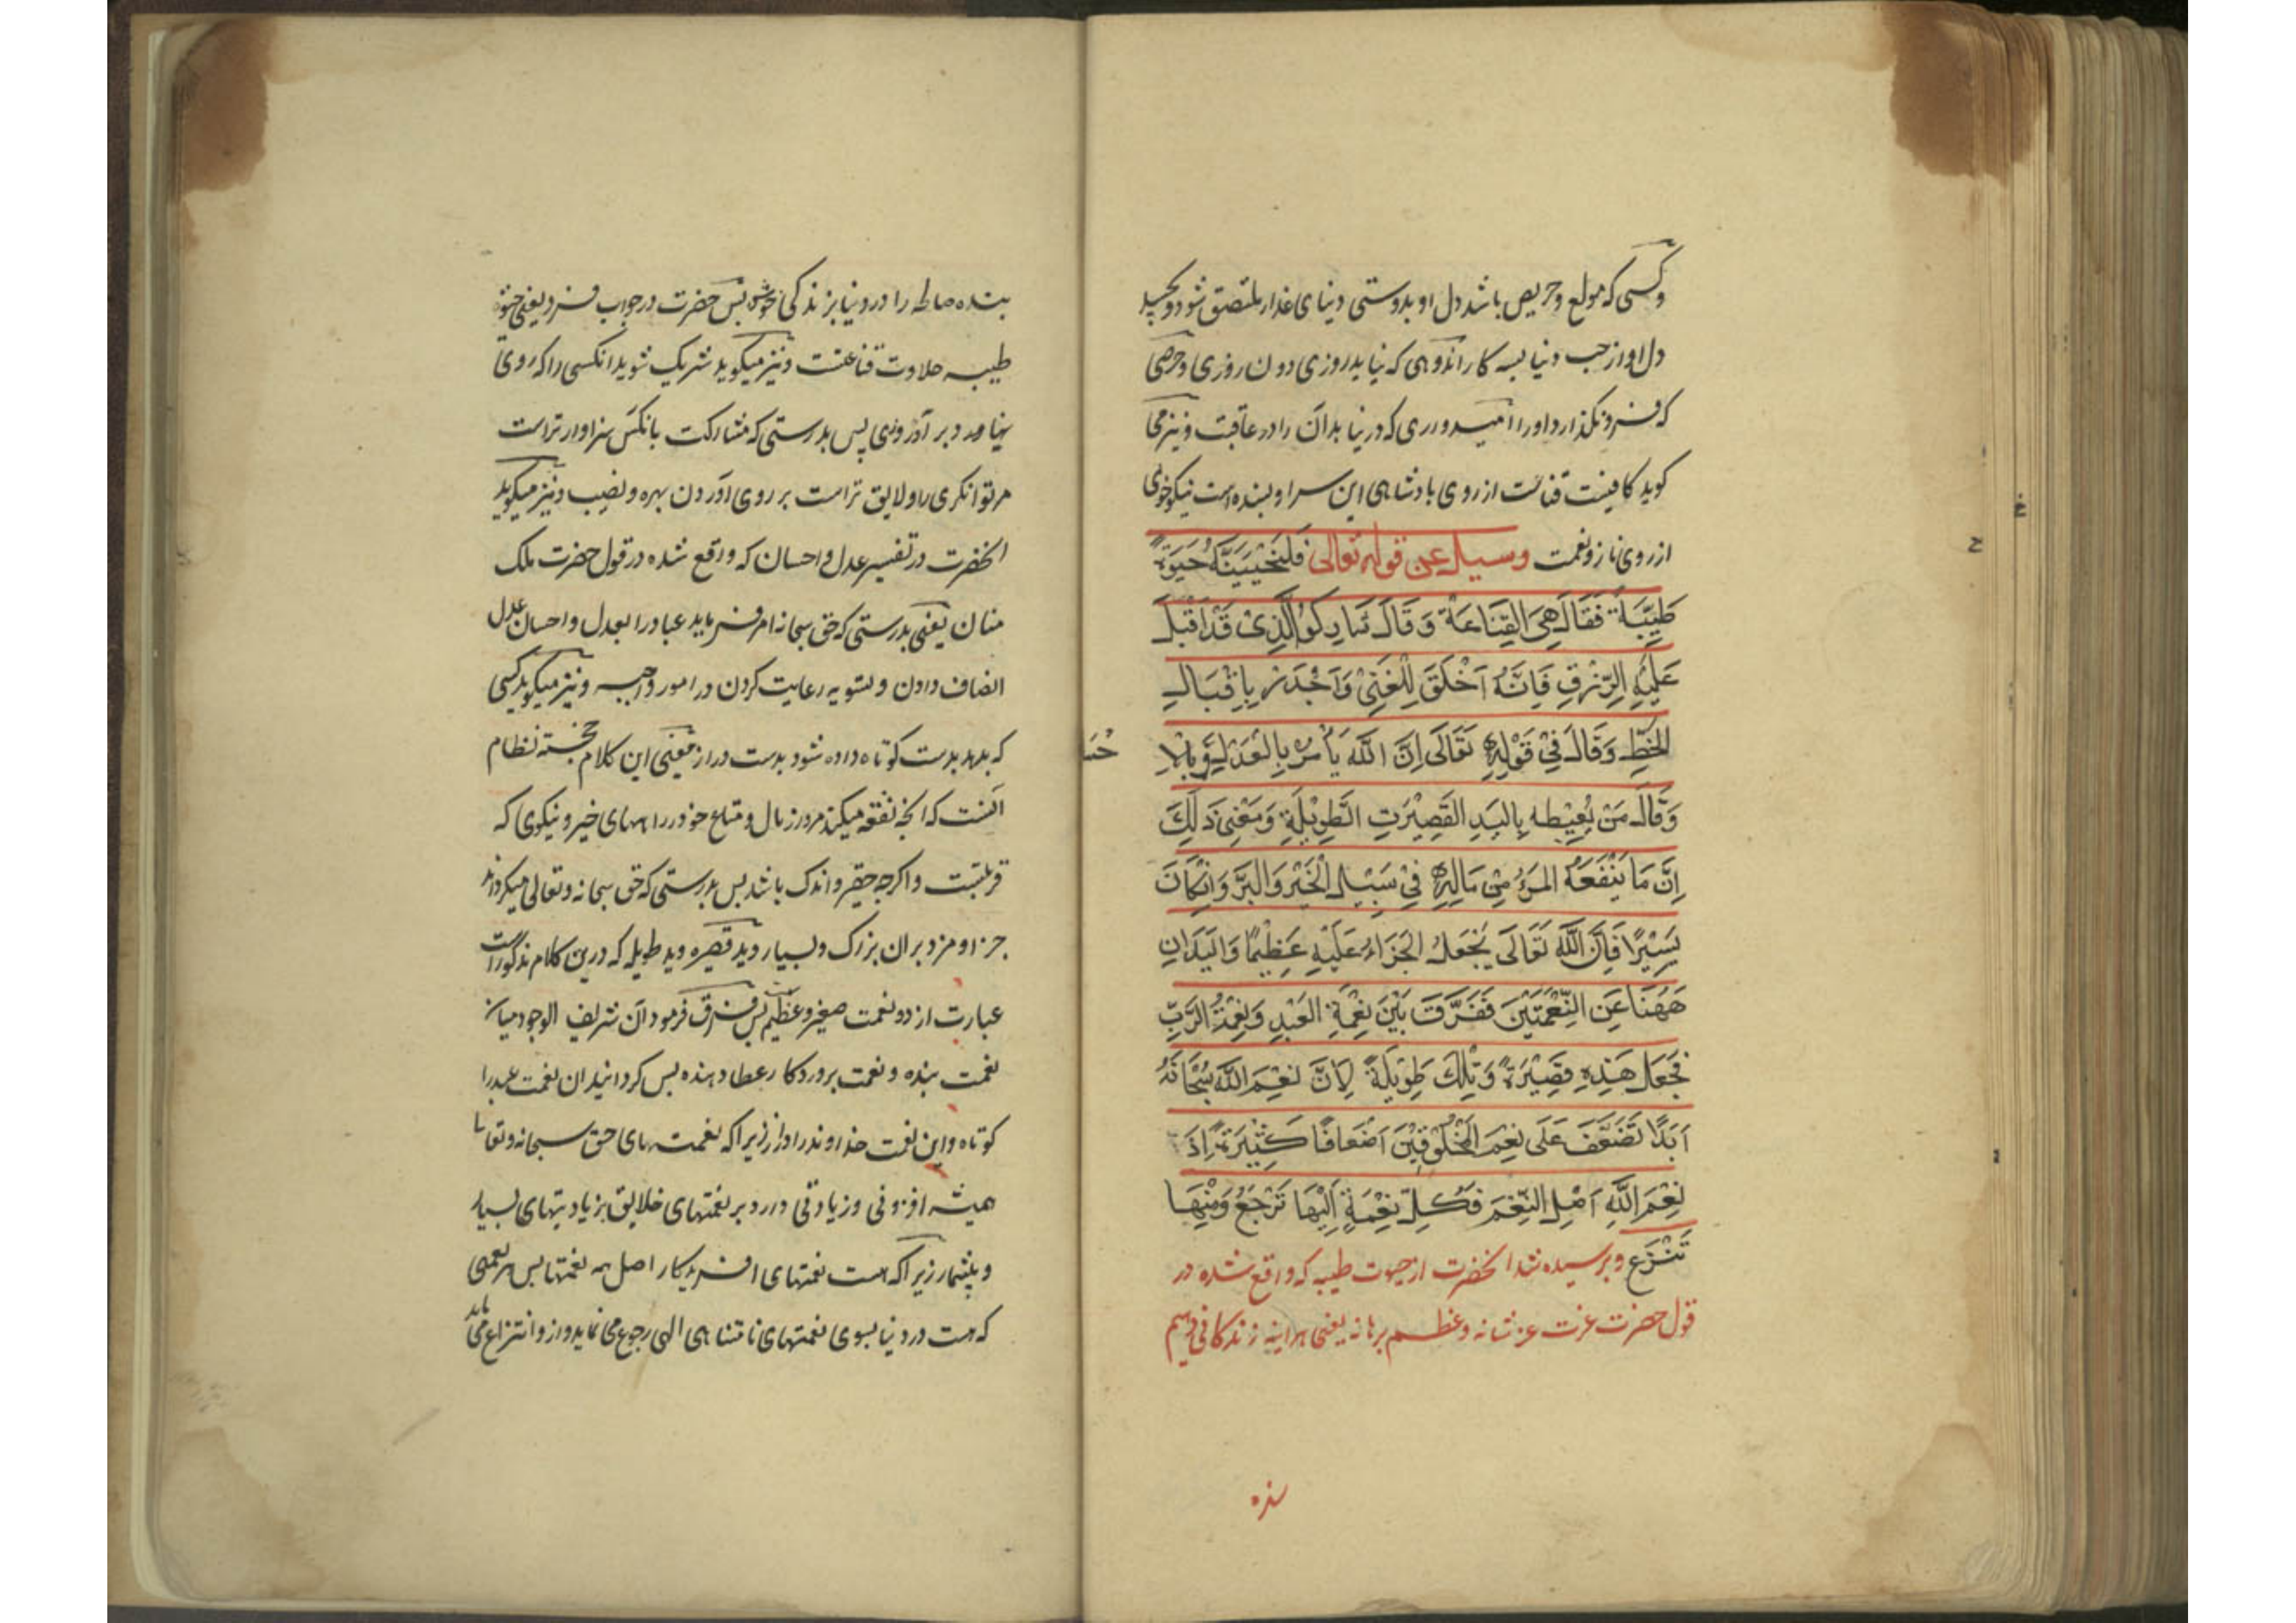 وکسی که مولع وحریص باشد دل او بدوستی دنیای غدار ملتصق شود و بچسپد
دل او از حب دنیا بسه کار اندوهی که نیاید روزی دون روزی وحرصی
که فرو نگذارد اورا امیدوری که در نیابد آن را در عاقبت ونیز می
کوید کافیست قناعت از روی بادشاهی این سرا وبسنده است نیکوخوی
از روی ناز ونعمت وسیل عن قوله تعالی فَلَنُحْیِیَنَّهُ حَیٰوةً
طَیِّبَةً فَقَالَ هِیَ القَنَاعَة وَقَالَ شَارِکُوا الَّذِیْ قَدْ اَقْبَلَ
عَلَیْهِ الرِّزْقِ فَاِنَّهُ اَخْلَقَ لِلْغِنَیْ وَاَجْدَرْ بِاِقْبَالِ
الحَظِّ وَقَالَ فِیْ قَوْلِهِ تَعَالَی اِنَّ اللّٰهَ یَأْمُرُ بِالْعَدْلِ وَبِالْاِ
حْسَا
وَقَالَ مَنْ یُعْطِ بِالیَدِ القَصِیْرَتِ الطَّوِیْلَةِ وَمَعْنِیْ ذَلِکَ
اِنَّ مَا یُنْفِقَهُ المَرْءُ مِنْ مَالِهِ فِیْ سَبِیْلِ الْخَیْرِ وَالبِرَّ وَاِنْ کَانَ
یَسِیْرًا فَاِنَّ اللّٰهَ تَعَالَی یَجْعَلُ الجَزَاءَ عَلَیْهِ عَظِیْمًا وَالیَدَانِ
هَهُنَا عَنِ النِّعْمَتَیْنِ فَفَرَّقَ بَیْنَ نِعْمَةِ العَبْدِ وَنِعْمَةُ الرَّبِّ
فَجَعَلَ هَذِهِ قَصِیْرَةً وَتِلْکَ طَوِیْلَةً لِاَنَّ نِعَمَ اللّٰهِ سُبْحَانَهُ
اَبَدًا تَضَعَّفَ عَلَی نِعَمِ المَخْلُوْقِیْنَ اَضْعَافًا کَثِیْرَةً اِذَ
نِعَمَ اللّٰهِ اَصْلِ النِّعَمِ فَکُلِّ نِعْمَةٍ اِلَیْهَا تَرْجَعُ وَمِنْهَا
تَنْزَع وپرسیده شد انحضرت از حیوت طیبه که واقع شده در
قول حضرت عزت عز شانه وعظم برهانه یعنی هراینه زندکانی دهیم
بنده
بنده صالحه را در دنیا بزندکی خوش پس حضرت در جواب فرمود یعنی حیوة
طیبه حلاوت قناعتست ونیز میکوید شریک شوید انکسی را که روی
نهاده بر آو روزی پس بدرستی که مشارکت بانکس سزاوار تراست
مرتوانکری را ولایق تراست بر روی آوردن بهره ونصیب ونیز میکوید
انحضرت در تفسیر عدل واحسان که واقع شده در قول حضرت ملک
منان یعنی بدرستی که حق سبحانه امر فرماید عباد را بعدل واحسان عدل
انصاف دادن وتسویه رعایت کردن در امور واجبه ونیز میکوید کسی
که بدهد بدست کوتاه داده شود بدست دراز معنی این کلام خجسته نظام
انست که انچه نفقه میکند مرد از مال ومتاع خود در راههای خیر ونیکوی که
قربتست واکرچه حقیر واندک باشد پس بدرستی که حق سبحانه وتعالی میکرداند
جزا ومزد بران بزرک وبسیار وید قصیره وید طویله که درین کلام مذکور است
عبارت از دو نعمت صغیر وعظیم پس فرق فرمود آن شریف الوجود میان
نعمت بنده ونعمت پروردکار عطا دهنده پس کردانید ان نعمت عبد را
کوتاه واین نعمت خداوند را دراز زیراکه نعمت های حق سبحانه وتعا
همیشه افزونی وزیادتی دارد بر نعمتهای خلایق بزیادیتهای بسیار
وبیشمار زیراکه هست نعمتهای افریدکار اصل همه نعمتها پس هر نعمتی
که هست در دنیا بسوی نعمتهای نامتناهی الهی رجوع می نماید واز و انتزاع می یابد